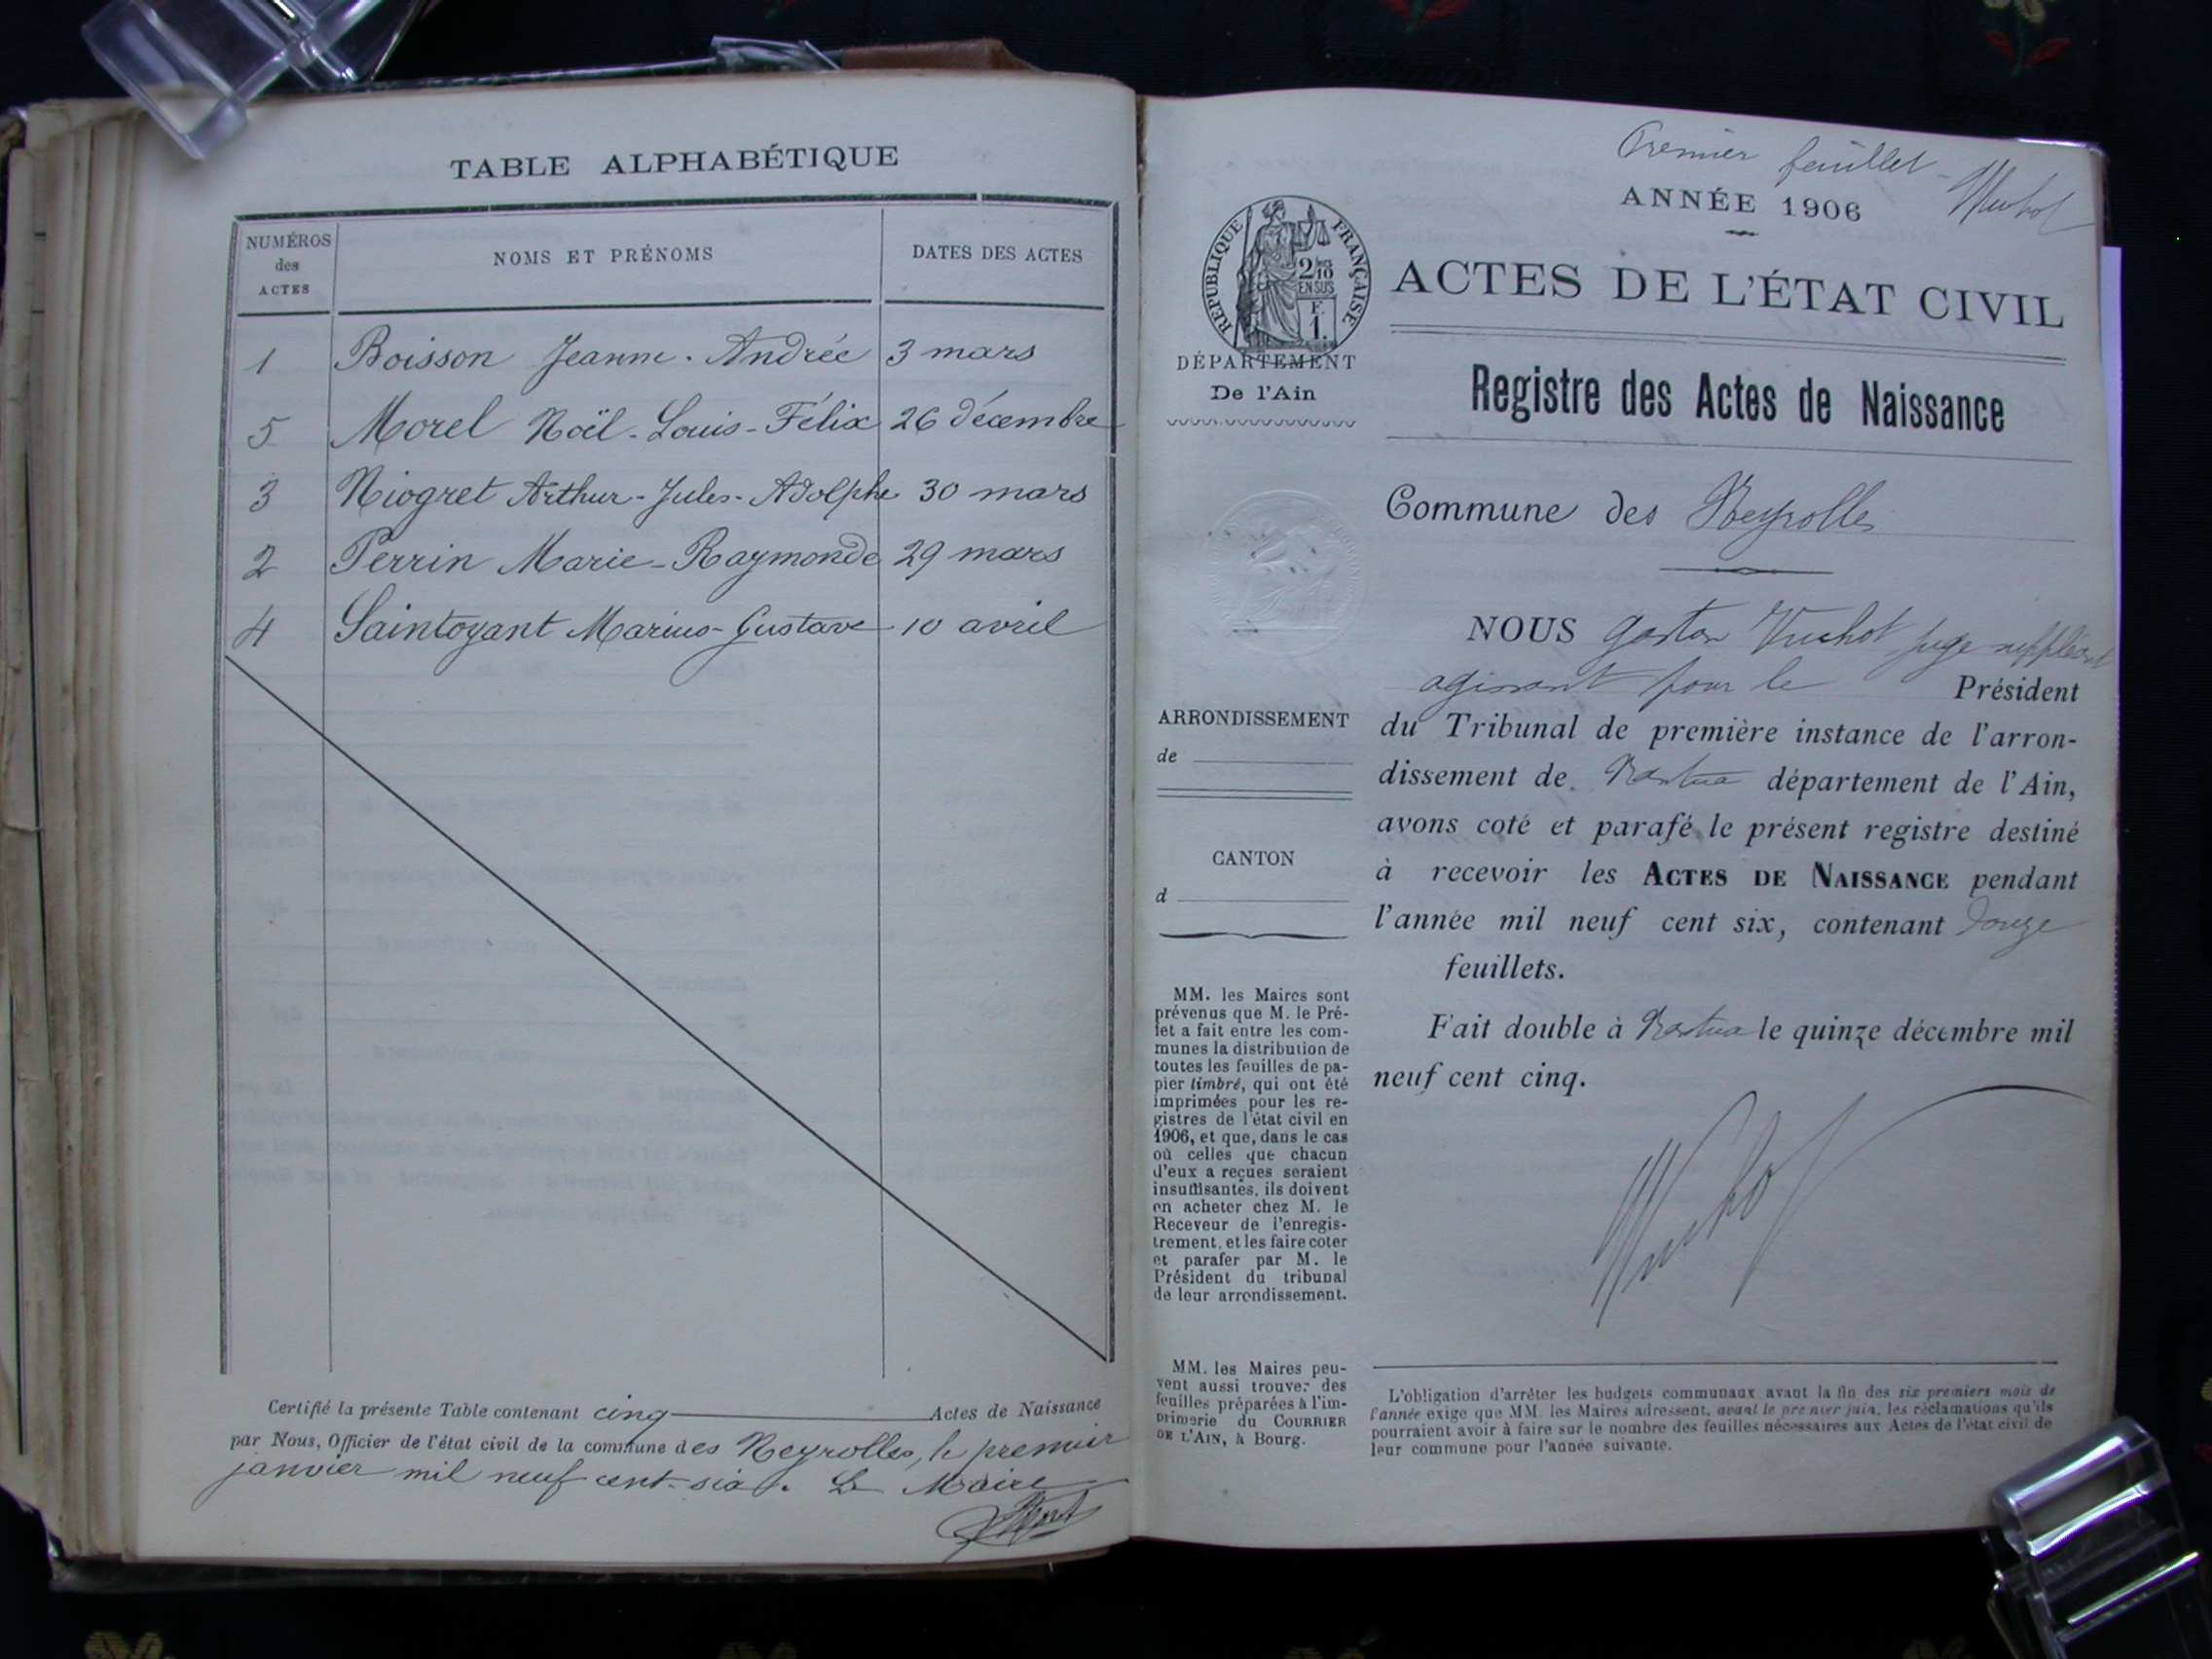 TABLE ALPHABÉTIQUE
NUMÉROS
des
ACTES
NOMS ET PRÉNOMS
DATES DES ACTES
1 Boisson Jeanne-Andrée 3 mars
5 Morel Noël-Louis-Félix 26 décembre
3 Niogret Arthur-Jules-Adolphe 30 mars
2 Perrin Marie-Raymonde 29 mars
4 Saintoyant Marius-Gustave 10 avril
Certifié la présente Table contenant cinq Actes de Naissance
par Nous, Officier de l'état civil de la commune des Neyrolles, le premier
janvier mil neuf cent-six. Le Maire
Premier feuillet -
ANNÉE 1906
RÉPUBLIQUE FRANÇAISE
2/10
EN SUS
F.
1.
ACTES DE L'ÉTAT CIVIL
DÉPARTEMENT
De l'Ain
Registre des Actes de Naissance
Commune des Neyrolles
NOUS Gaston Vuchot juge suppléant
agissant pour le Président
du Tribunal de première instance de l'arron-
dissement de Nantua département de l'Ain,
avons coté et parafé le présent registre destiné
à recevoir les ACTES DE NAISSANCE pendant
l'année mil neuf cent six, contenant douze
feuillets.
Fait double à Nantua le quinze décembre mil
neuf cent cinq.
ARRONDISSEMENT
de
CANTON
d
MM. les Maires sont
prévenus que M. le Pré-
fet a fait entre les com-
munes la distribution de
toutes les feuilles de pa-
pier timbré, qui ont été
imprimées pour les re-
gistres de l'état civil en
1906, et que, dans le cas
où celles que chacun
d'eux a reçues seraient
insuffisantes, ils doivent
en acheter chez M. le
Receveur de l'enregis-
trement, et les faire coter
et parafer par M. le
Président du tribunal
de leur arrondissement.
MM. les Maires peu-
vent aussi trouver des
feuilles préparées à l'im-
primerie du COURRIER
DE L'AIN, à Bourg.
L'obligation d'arrêter les budgets communaux avant la fin des six premiers mois de
l'année exige que MM. les Maires adressent, avant le premier juin, les réclamations qu'ils
pourraient avoir à faire sur le nombre des feuilles nécessaires aux Actes de l'état civil de
leur commune pour l'année suivante.